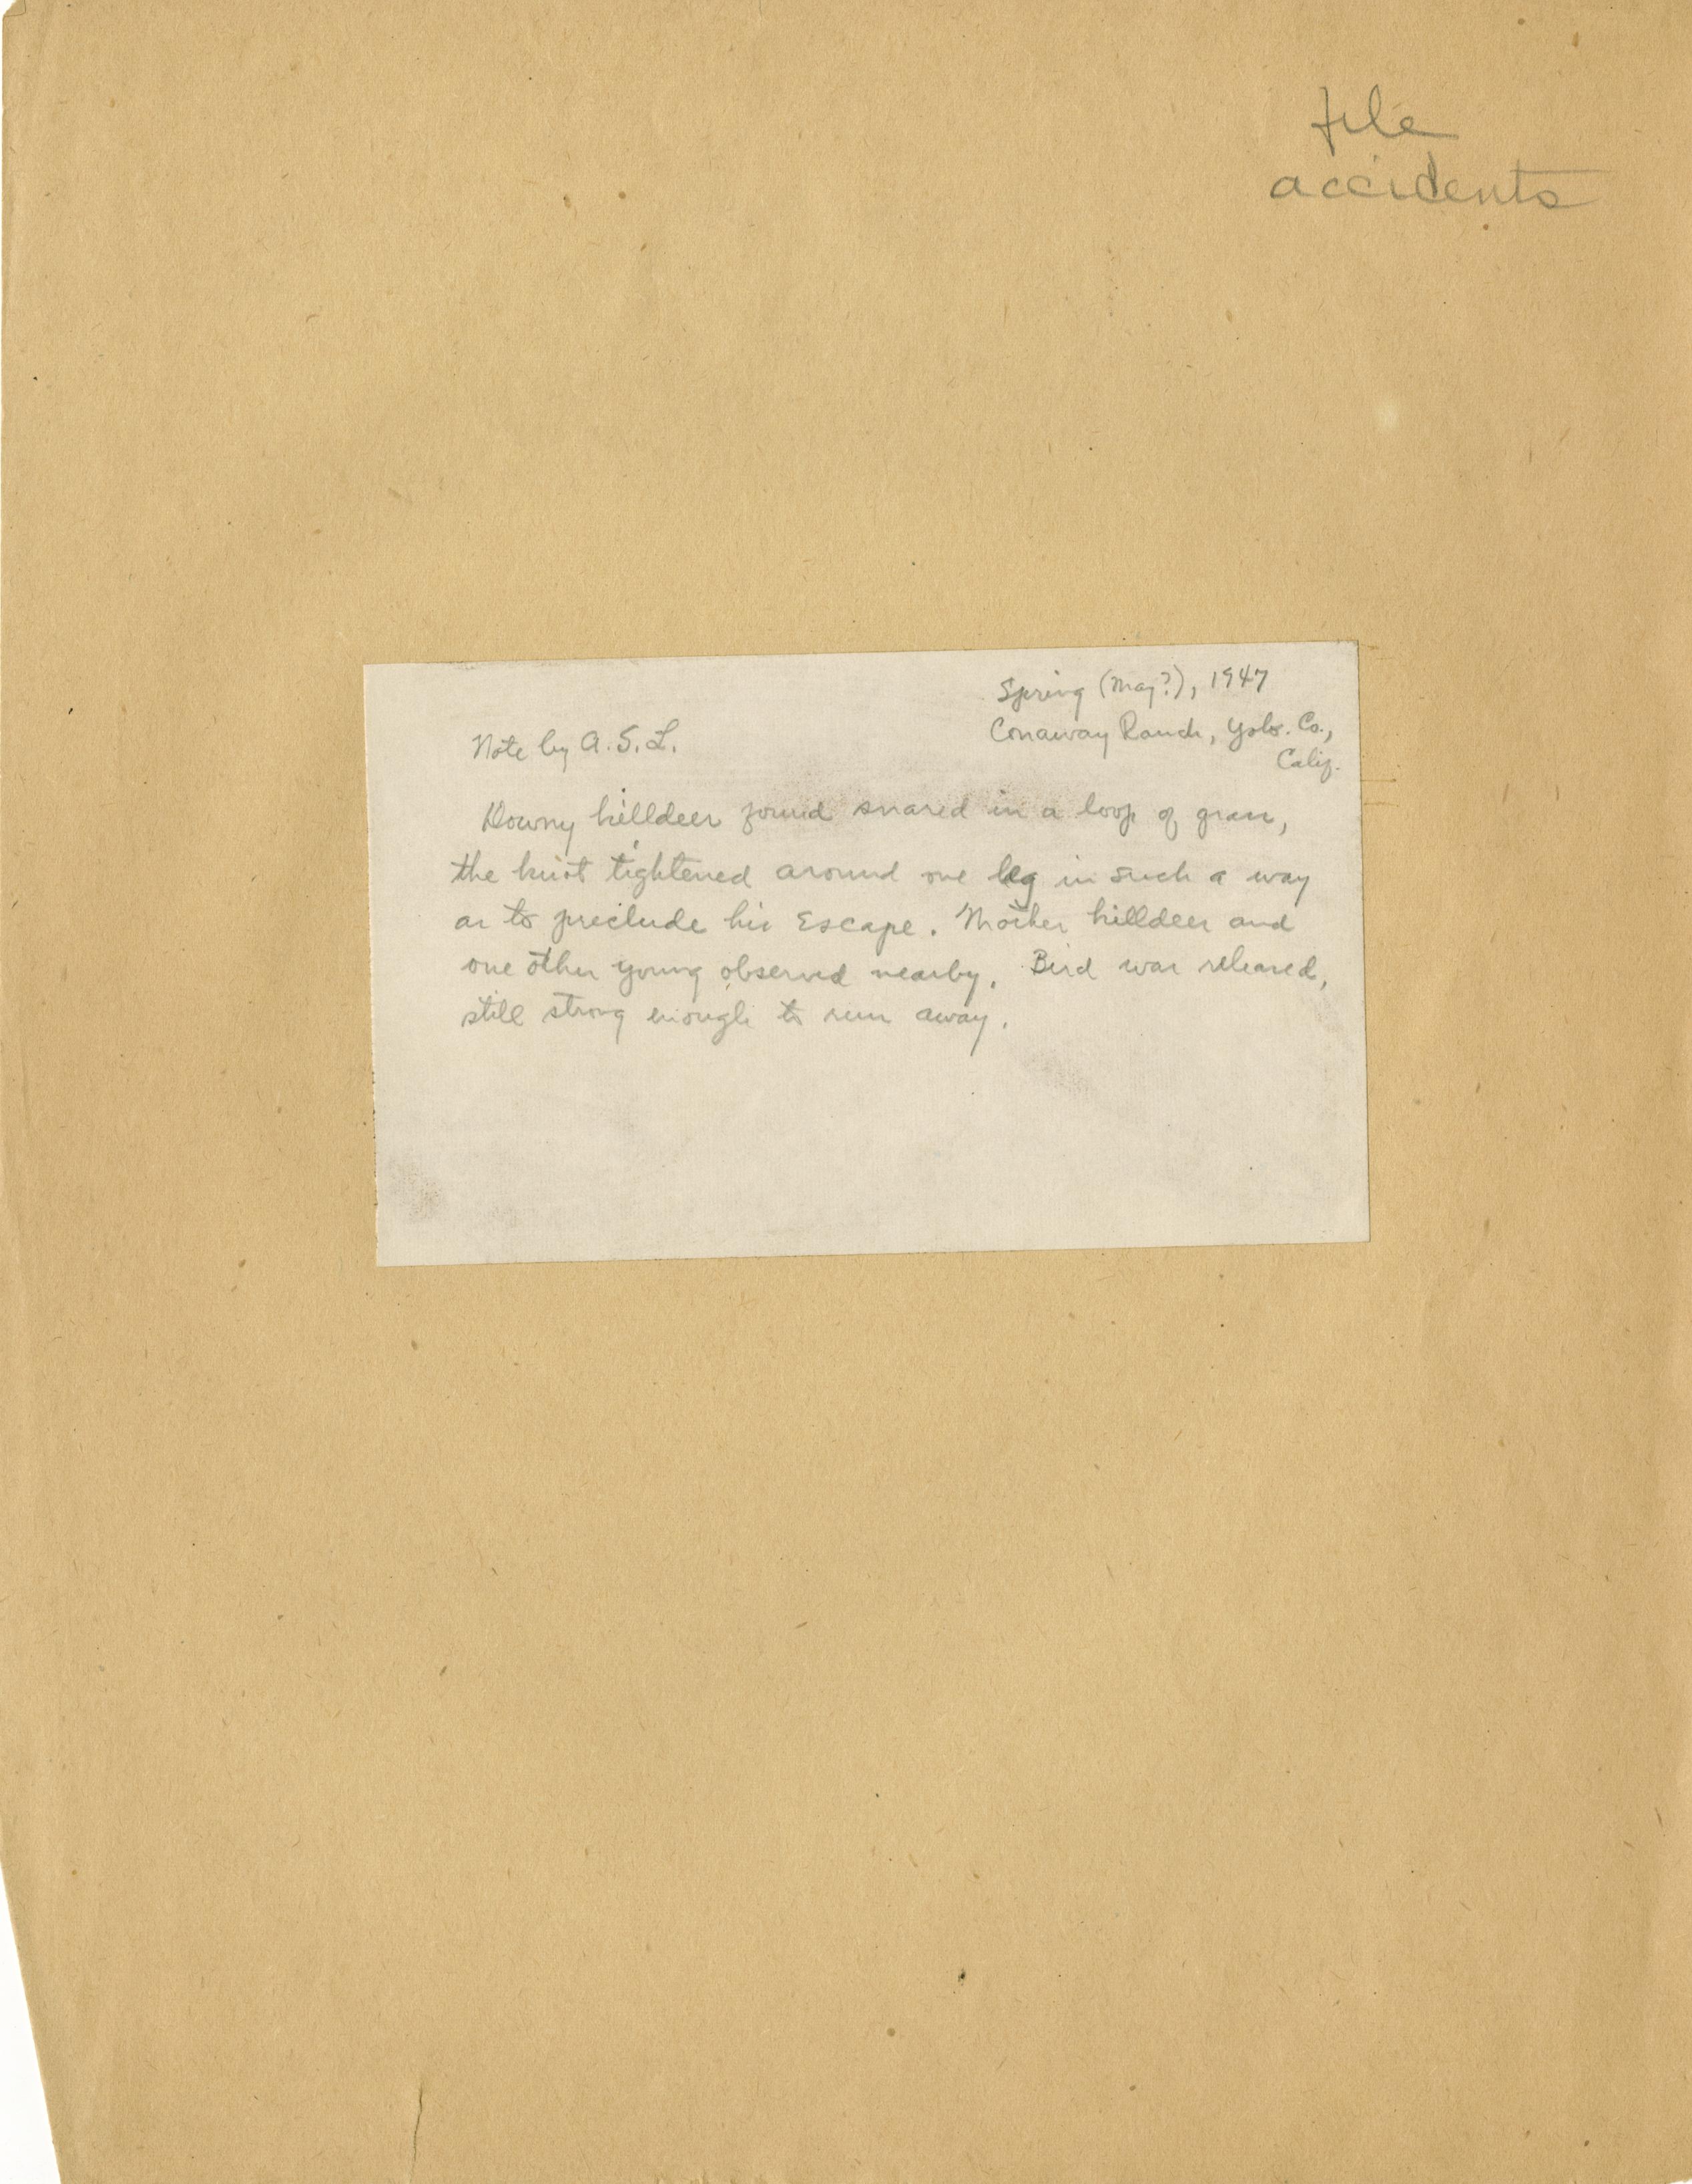 file
accidents
Spring (May?), 1947
Conaway Ranch, Yolo. Co.,
Calif.
Note by A. S. L.
Downy killdeer found snared in a loop of grass,
the knot tightened around one leg in such a way
as to preclude his escape. Mother killdeer and
one other young observed nearby. Bird was released,
still strong enough to run away.